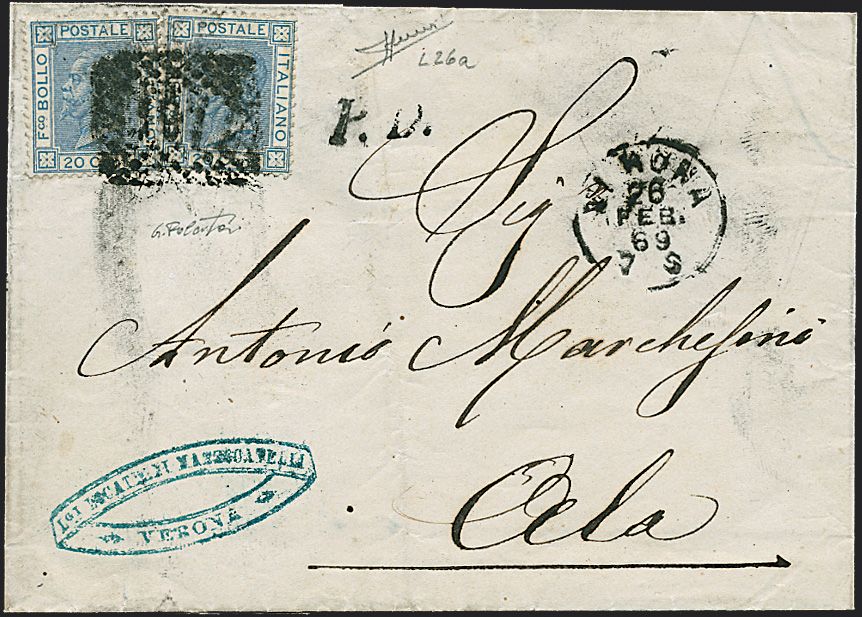 POSTALE POSTALE
Fco BOLLO
ITALIANO
20 C 20
L26a
P. D.
VERONA
26
FEB.
69
7 S
Sigr
Antonio Marchesini
Ala
VERONA